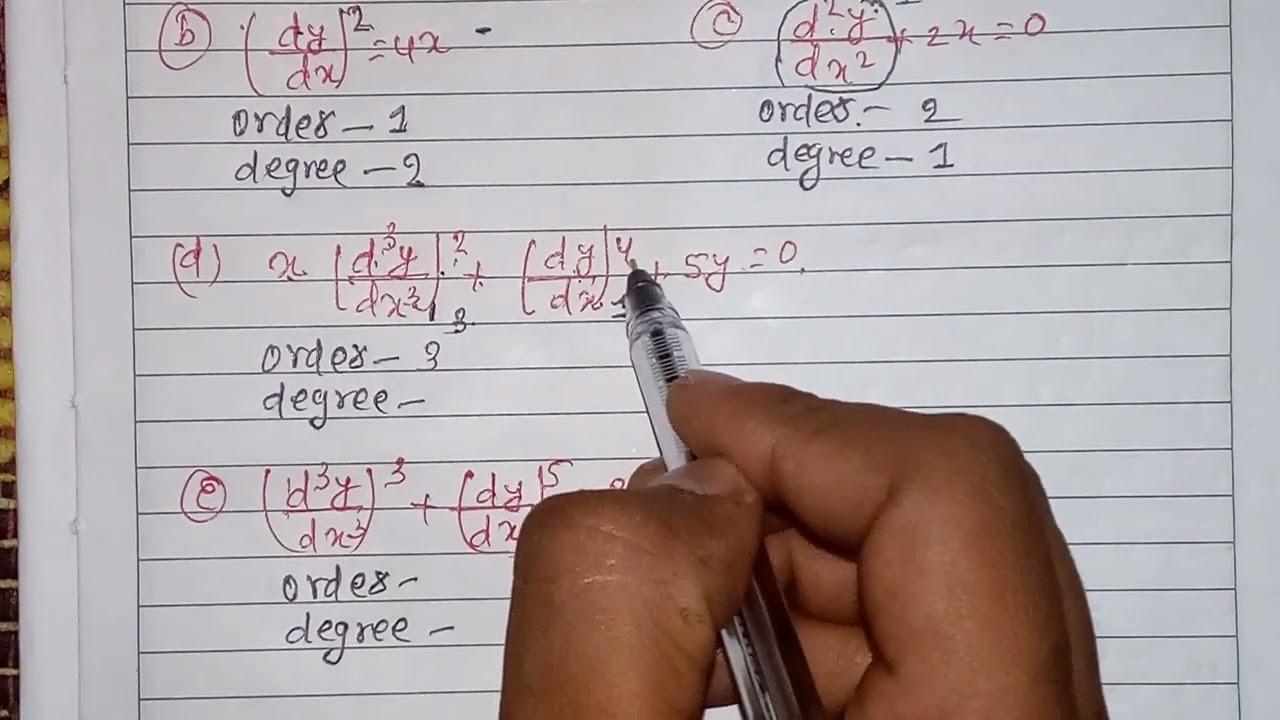 (b) (dy/dx)^2 = 4x -
order - 1
degree - 2
(c) (d^2y/dx^2) + 2x = 0
order - 2
degree - 1
(d) x (d^3y/dx^3)^2 + (dy/dx)^4 + 5y = 0
order - 3 3
degree -
(e) (d^3y/dx^3)^3 + (dy/dx)^5
order -
degree -